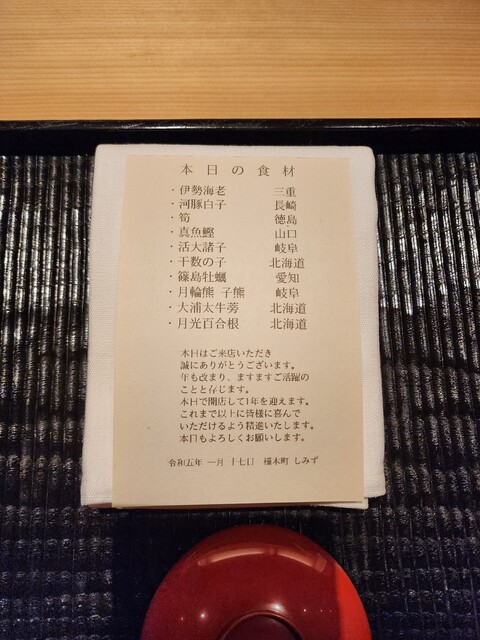 本日の食材
・伊勢海老 三重
・河豚白子 長崎
・筍 徳島
・真魚鰹 山口
・活大諸子 岐阜
・干数の子 北海道
・篠島牡蠣 愛知
・月輪熊 子熊 岐阜
・大浦太牛蒡 北海道
・月光百合根 北海道
本日はご来店いただき
誠にありがとうございます。
年も改まり、ますますご活躍の
ことと存じます。
本日で開店して1年を迎えます。
これまで以上に皆様に喜んで
いただけるよう精進いたします。
本日もよろしくお願いします。
令和五年 一月 十七日 橦木町 しみず